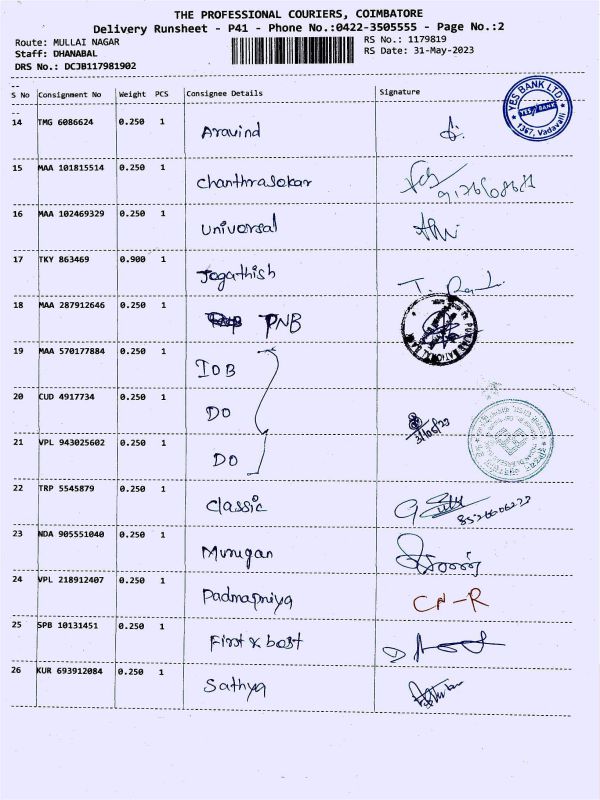 THE PROFESSIONAL COURIERS, COIMBATORE
Delivery Runsheet - P41 - Phone No.:0422-3505555 - Page No.:2
Route: MULLAI NAGAR RS No.: 1179819
Staff: DHANABAL RS Date: 31-May-2023
DRS No.: DCJB117981902
S No Consignment No Weight PCS Consignee Details Signature
YES BANK LTD.
YES BANK
1367, Vadavalli
14 TMG 6086624 0.250 1 Aravind
15 MAA 101815514 0.250 1 Chanthrasekar
16 MAA 102469329 0.250 1 Universal
17 TKY 863469 0.900 1 Jogathish
18 MAA 287912646 0.250 1 PNB
19 MAA 570177884 0.250 1 IOB
20 CUD 4917734 0.250 1 DO
31/05/23
21 VPL 943025602 0.250 1 DO
22 TRP 5545879 0.250 1 Classic
8526606223
23 NDA 905551040 0.250 1 Murugan
24 VPL 218912407 0.250 1 Padmapriya CN-R
25 SPB 10131451 0.250 1 First & best
26 KUR 693912084 0.250 1 Sathya